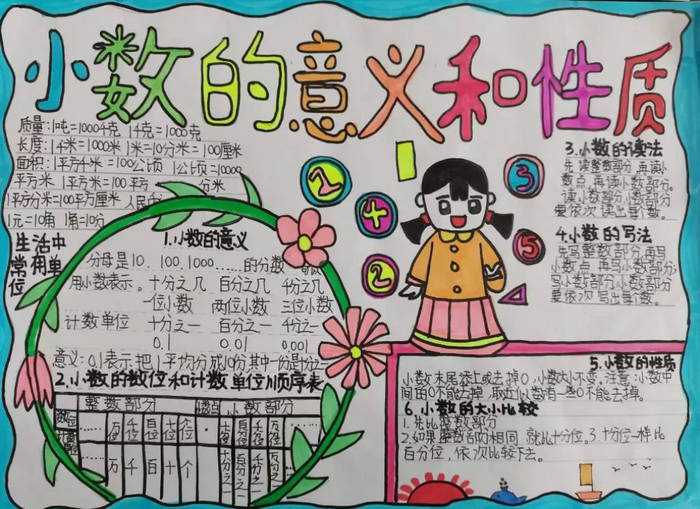 小数的意义和性质
质量:1吨=1000千克 1千克=1000克
长度:1千米=1000米 1米=10分米=100厘米
面积:1平方千米=100公顷 1公顷=10000
平方米 1平方米=100平方分米
1平方分米=100平方厘米 人民币
1元=10角 1角=10分
生活中
常用单
位
1.小数的意义
分母是10、100、1000……的分数
用小数表示。十分之几 百分之几 千分之几
一位小数 两位小数 三位小数
计数单位 十分之一 百分之一 千分之一
0.1 0.01 0.001
意义:0.1表示把1平均分成10份,其中一份是十分之一
2.小数的数位和计数单位顺序表
整数部分 小数点 小数部分
数位 …… 万位 千位 百位 十位 个位 · 十分位 百分位 千分位 万分位 ……
…… 万 千 百 十 个 十分之一 百分之一 千分之一 万分之一 ……
2 4 2 3 5
3.小数的读法
先读整数部分,再读小
数点,再读小数部分。
读小数部分,小数部分
要依次读出每个数。
4.小数的写法
先写整数部分,再写
小数点,再写小数部分:
写小数部分,小数部分
要依次写出每个数。
5.小数的性质
小数末尾添上或去掉0,小数大小不变。注意:小数中
间的0不能去掉,取近似数有一些0不能去掉。
6.小数的大小比较
1.先比整数部分
2.如果整数部分相同,就比十分位。3.十分位一样,比
百分位,依次比较下去。